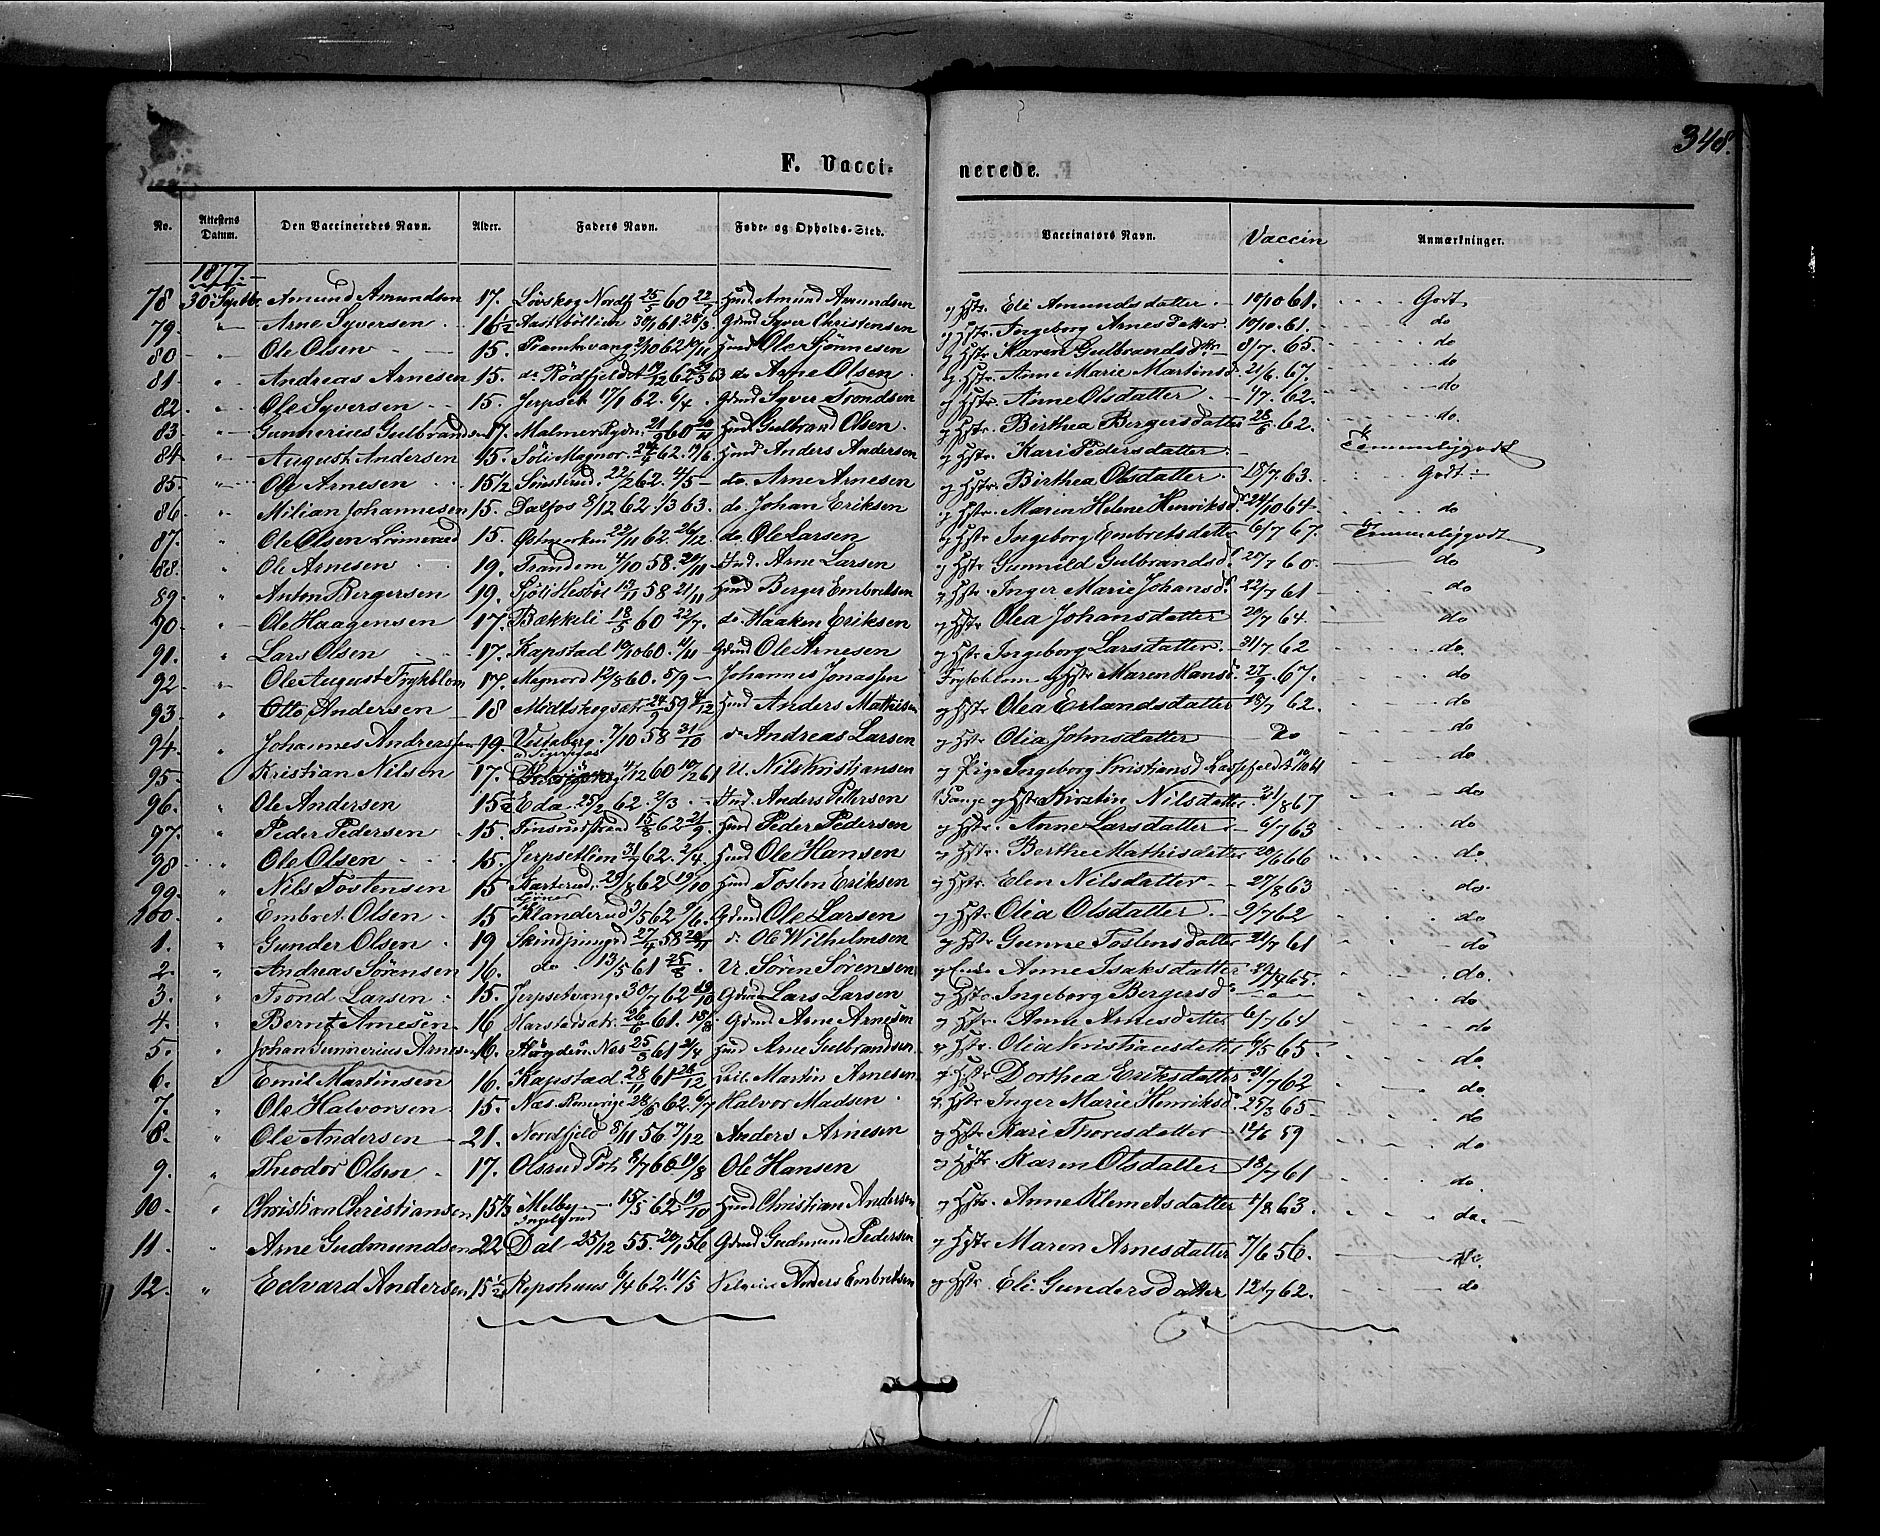 348.
F. Vacci- nerede.
No. Attestens Datum. Den Vaccineredes Navn. Alder. Faders Navn. Føde- og Opholds-Sted. Vaccinators Navn. Vaccin Anmærkninger.
1877.
78 30 Septbr Amund Amundsen 17. Løvskog Nordf 25/5 60 22/7 Husd. Amund Amundsen og Hstr. Eli Amundsdatter 10/10 61. Godt
79. " Arne Syversen 16 1/2 30/1 61 28/3 Gdmd Syver Christensen og Hstr. Ingeborg Arnesdatter 10/10.61. do
80 " Ole Olsen 15. 2/10 62 Husd Ole og Hstr. Karen Gulbrandsdtr 8/7.65. do
81 " Andreas Arnesen 15. do Rödfjeldet 12/12 62 do Arne Olsen og Hstr. Anne Marie Martinsd. 21/6.67. do
82. " Ole Syversen 15. Jerpset 1/1 62. 6/4. Gdmd Syver Trondsen og Hstr. Anne Olsdatter 4/7.62. do
83. " Gunnerius Gulbrandsen 17. Malmer Rydn. 21/9 60 20/11 Husd Gulbrand Olsen. og Hstr. Birthea Bergersdatter 28/6 62. do
84. " August Andersen 15. Söli Magnor. 62. 9/6 Husd Anders Andersen og Hstr. Kari Pedersdatter Temmeliggodt
85. " Ole Arnesen 15 1/2 22/2 62. 4/5 do. Arne Arnesen og Hstr. Birthea Olsdatter. 18/7 63. Godt
86. " Milian Johannesen 15. Dalfos 8/12 62. 1/3 63. do. Johan Eriksen og Hstr. Maren Helene Henriksd. 24/10 64 do
87. " Ole Olsen 15. Østmorken 22/11 62. 26/12 do Ole Larsen og Hstr. Ingeborg Embretsdatter 6/7 67. Temmeliggodt
88. " Ole Arnesen 19. Trandem 4/10 58. 20/11 Ind. Arne Larsen og Hstr. Gunnild Gulbrandsd. 27/7 60 do
89. " Anton Bergersen 19. 13/11 58 21/11 Husd Berger Embretsen og Hstr. Inger Marie Johansd. 22/7 61 do
90. " Ole Haagensen 17. Bækkeli 18/5 60 22/7. do. Haaken Eriksen og Hstr. Olea Johansdatter 20/7 64 do
91. " Lars Olsen 17. Kapstad 10/10 60. 11/11 Gdmd Ole Arnesen og Hstr. Ingeborg Larsdatter. 31/7 62 do.
92 " Ole August Frykblom 17. Magnord 12/8 60. 5/9 Johannes Jonassen Frykblom og Hstr Maren Hansd. 27/9 67. do
93. " Otto Andersen 18 Midtskogsætr. 24/9 59 Husd Anders Mathisen og Hstr Olea Erlandsdatter 18/7 62. do
94. " Johannes Andreassen 19 7/10 58 21/10 do Andreas Larsen og Hstr. Olia Johnsdatter do do
95. " Kristian Nilsen 17. 4/12 60 10/2 61 U. Nils Kristiansen og Pige Ingeborg Kristiansd do
96. " Ole Andersen 15 1/2 Eda 25/1 62. 2/3. Ind. Anders Pettersen og Hstr Kirstin Nilsdatter. 31/8 67 do
97. " Peder Pedersen 15. 15/8 62 21/9. Husd Peder Pedersen og Hstr. Anne Larsdatter 6/7 63 do
98. " Ole Olsen 15. Jerpsetlien 31/1 62. 2/4. Husd Ole Hansen og Hstr. Berthe Mathisdatter 20/6 66 do.
99. " Nils Tostensen 15 Skarterud. 29/8 62 19/10 Husd Tosten Eriksen og Hstr. Elen Nilsdatter. 27/8 63 do.
100. " Embret Olsen 15 Klanderud 3/5 62 9/6. Gdmd Ole Larsen og Hstr. Olia Olsdatter. 9/7 62 do
1. " Gunder Olsen 19 58 d. Ole Wilhelmsen og Hstr. Gunne Tostensdatter 31/7 61 do
2. " Andreas Sörensen 16. do 13/5 61 25/8. U. Sören Sörensen og Anne Isaksdatter 65. do.
3. " Trond Larsen 15. Jerpsetvang. 30/7 62 19/10 Gdmd Lars Larsen og Hstr. Ingeborg Bergersd. do
4. " Bernt Arnesen 16 Harstadsæt. 26/6 61. 18/8. Gdmd Arne Arnesen og Hstr. Anne Arnesdatter 6/7 64 do
5. " Johan Gunnerius Arnesen 16. Høgden. Næs 25/8 61 Husd Arne Gulbrandsen og Hstr. Olia Kristiansdatter 6/5 65. do.
6. " Emil Martinsen 16. Kapstad. 28/11 61 26/12 Martin Arnesen og Hstr. Dorthea Eriksdatter 31/7 62 do
7. " Ole Halvorsen 15. Næs Romerige 28/5 62. 6/7 Halvor Madsen og Hstr. Inger Marie Henriksd. 25/3 65 do
8. " Ole Andersen 21. Nordfjeld 8/11 56 7/12 Anders Arnesen og Hstr. Kari Thoresdatter 12/6 59 do
9. " Theodor Olsen 17. Olsrud 8/7 60 19/8 Ole Hansen og Hstr. Karen Olsdatter 18/7 61 do.
10. " Christian Christiansen 15 1/3 Melby 15/5 62 19/10 Husd Christian Andersen og Hstr. Anne Klemetsdatter 1/8 63. do.
11. " Arne Gudmundsen 22 Dal 25/12 55. 20/1 56 Gdmd Gudmund Pedersen og Hstr Maren Arnesdatter 7/6 56. do.
12. " Edvard Andersen 15 1/2 Repshuus 6/4 62. 11/5 Anders Embretsen og Hstr. Eli Gundersdatter 12/7 62. do